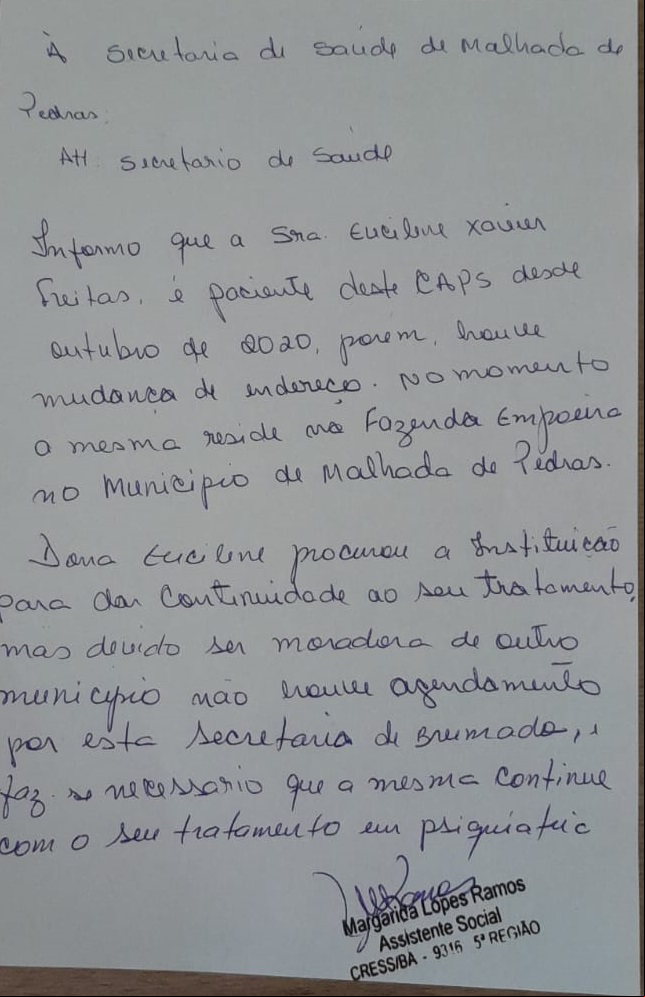 À Secretaria de Saúde de Malhada de
Pedras:
Att. Secretario de Saúde
Informo que a Sra. Eucilene Xavier
Freitas, é paciente deste CAPS desde
outubro de 2020, porem, houve
mudança de endereço. No momento
a mesma reside na Fazenda Empoeira
no Municipio de Malhada de Pedras.
Dona Eucilene procurou a Instituição
para dar Continuidade ao seu tratamento,
mas devido ser moradora de outro
municipio não houve agendamento
por esta secretaria de Brumado,
faz se necessario que a mesma continue
com o seu tratamento em psiquiatric
Margarida Lopes Ramos
Assistente Social
CRESS/BA - 9316 5ª REGIÃO